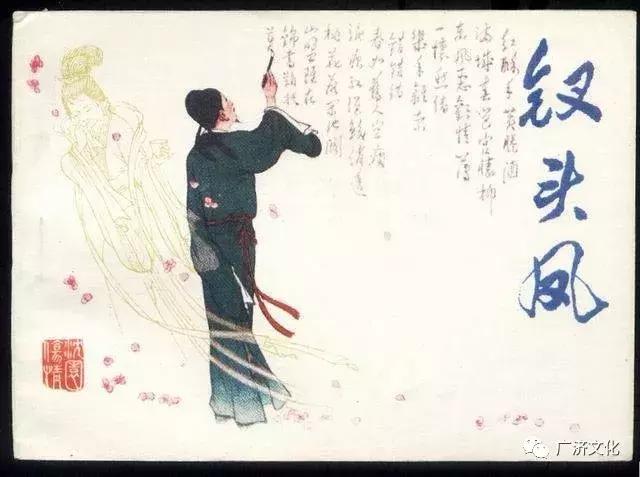 钗头凤
红酥手黄縢酒
满城春色宫墙柳
东风恶欢情薄
一怀愁绪
几年离索
错错错
春如旧人空瘦
泪痕红浥鲛绡透
桃花落闲池阁
山盟虽在
锦书难托
莫
沈園
傷情
广济文化